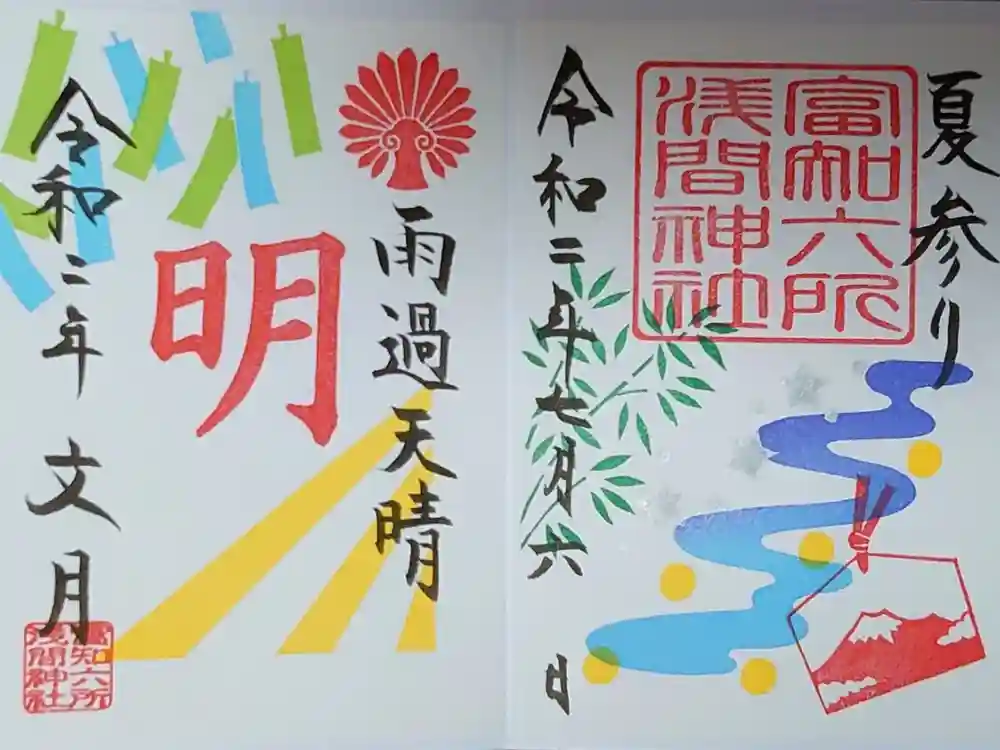 夏参り
富知六所
浅間神社
令和二年七月六日
雨過天晴
明
令和二年 文月
富知六所
浅間神社